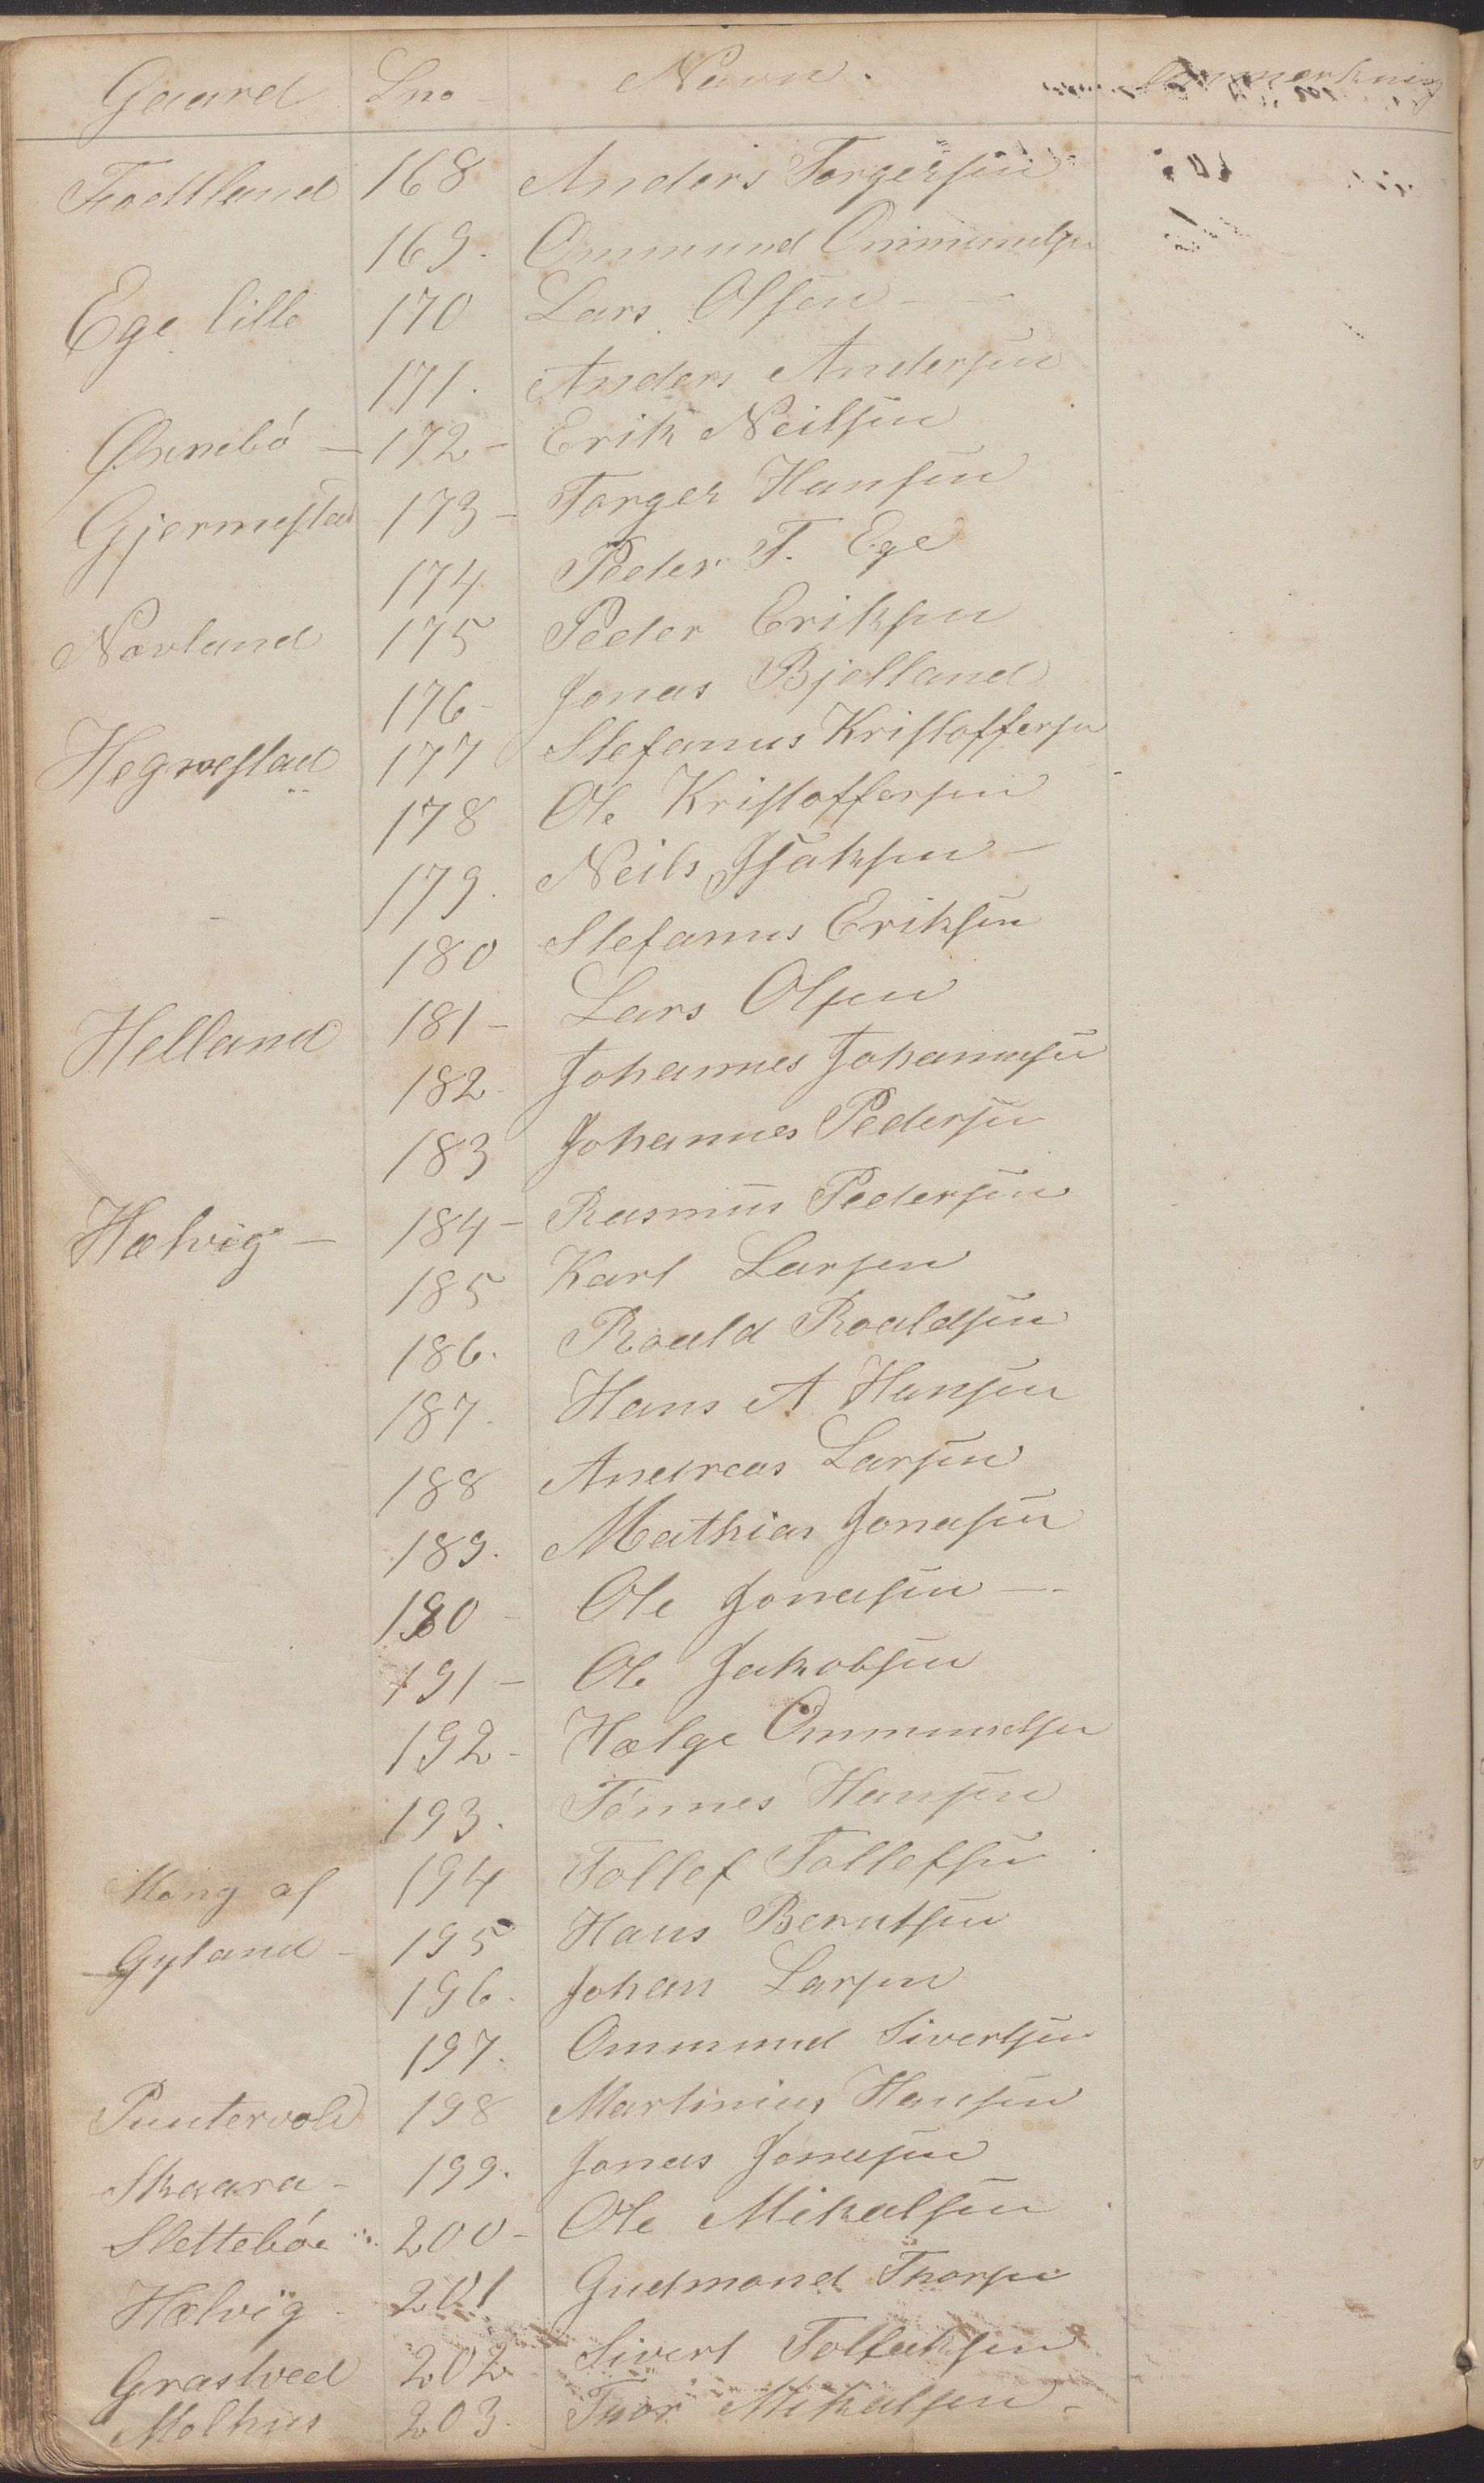 Gaard Lno Navn. Anmerkning
Fodtland 168 Anders Torgersen
169. Ommund Ommundsen
Ege lille 170 Lars Olsen
171. Anders Andersen
Øxnebö 172 Erik Neilsen
Gjermestad 173 Torger Hansen
174 Peder T. Ege
Nævland 175 Peder Eriksen
176 Jonas Bjelland
Hegrestad 177 Stefanus Kristoffersen
178 Ole Kristoffersen
179. Neils Isaksen
180 Stefanus Eriksen
Helland 181 Lars Olsen
182 Johannes Johannesen
183 Johannes Pedersen
Hælvig 184 Rasmus Pedersen
185 Karl Larsen
186. Roald Roaldsen
187. Hans A Hansen
188 Andreas Larsen
189. Mathias Jonasen
190 Ole Jonasen
191 Ole Jakobsen
192 Hælge Ommundsen
193. Tönnes Hansen
194 Tollef Tollefsen
Mong af
Gyland 195 Hans Berntsen
196. Johan Larsen
197. Ommund Sivertsen
Puntervold 198 Martinius Hansen
Skaara 199. Jonas Jonasen
Sletteböe 200 Ole Mikalsen
Hælvig 201 Gudmond Thorsen
Grastved 202 Sivert Tolleksen
Molhus 203. Thor Mikalsen